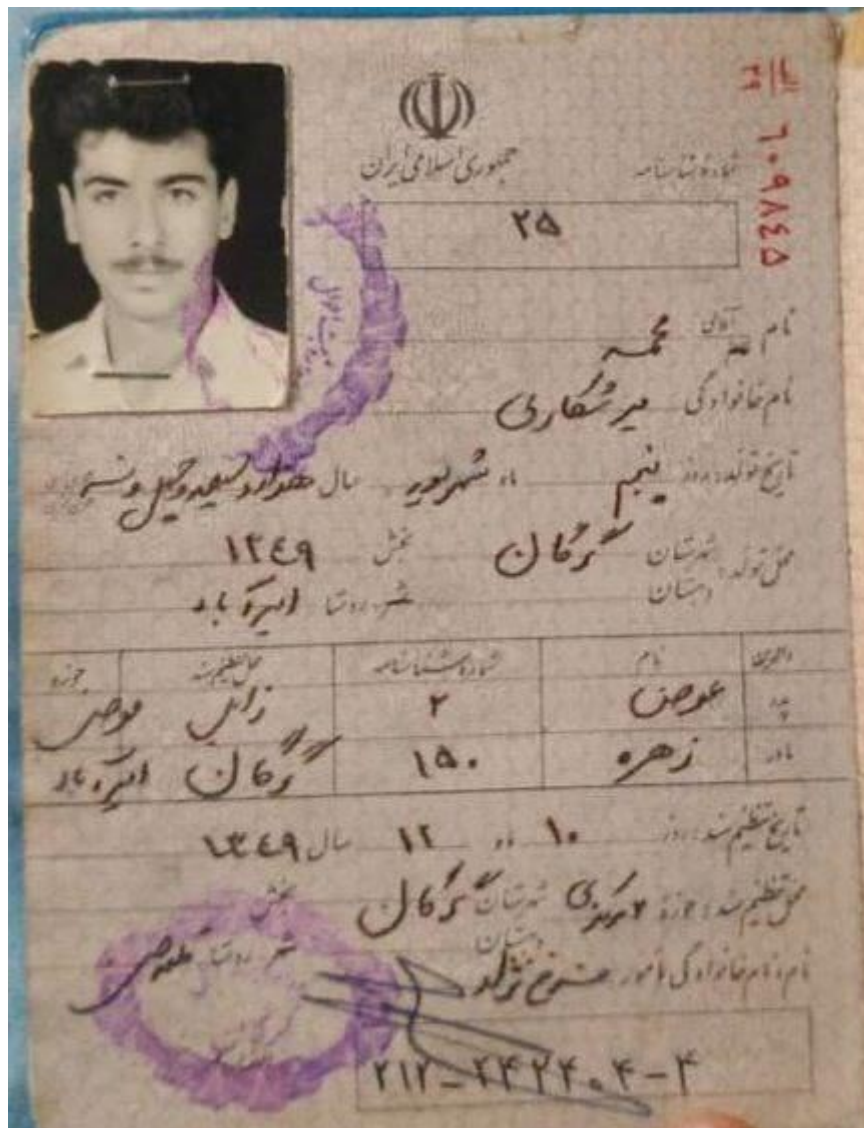 الف
۲۹ ۶۰۹۸۴۵
جمهوری اسلامی ایران
شماره شناسنامه
۲۵
نام آقای محمد
نام خانوادگی میرشکاری
تاریخ تولد: روز پنجم ماه شهریور سال هزار و سیصد و چهل و نه
۱۳۴۹
محل تولد: شهرستان گرگان بخش
دهستان شهر، روستا امیرآباد
والدین نام شماره شناسنامه محل تنظیم سند حوزه
پدر عوض ۲ زابل
مادر زهره ۱۵۰ گرگان امیرآباد
تاریخ تنظیم سند: روز ۱۰ ماه ۱۲ سال ۱۳۴۹
محل تنظیم سند: حوزه مرکزی شهرستان گرگان بخش
دهستان شهر روستا
نام و نام خانوادگی مأمور